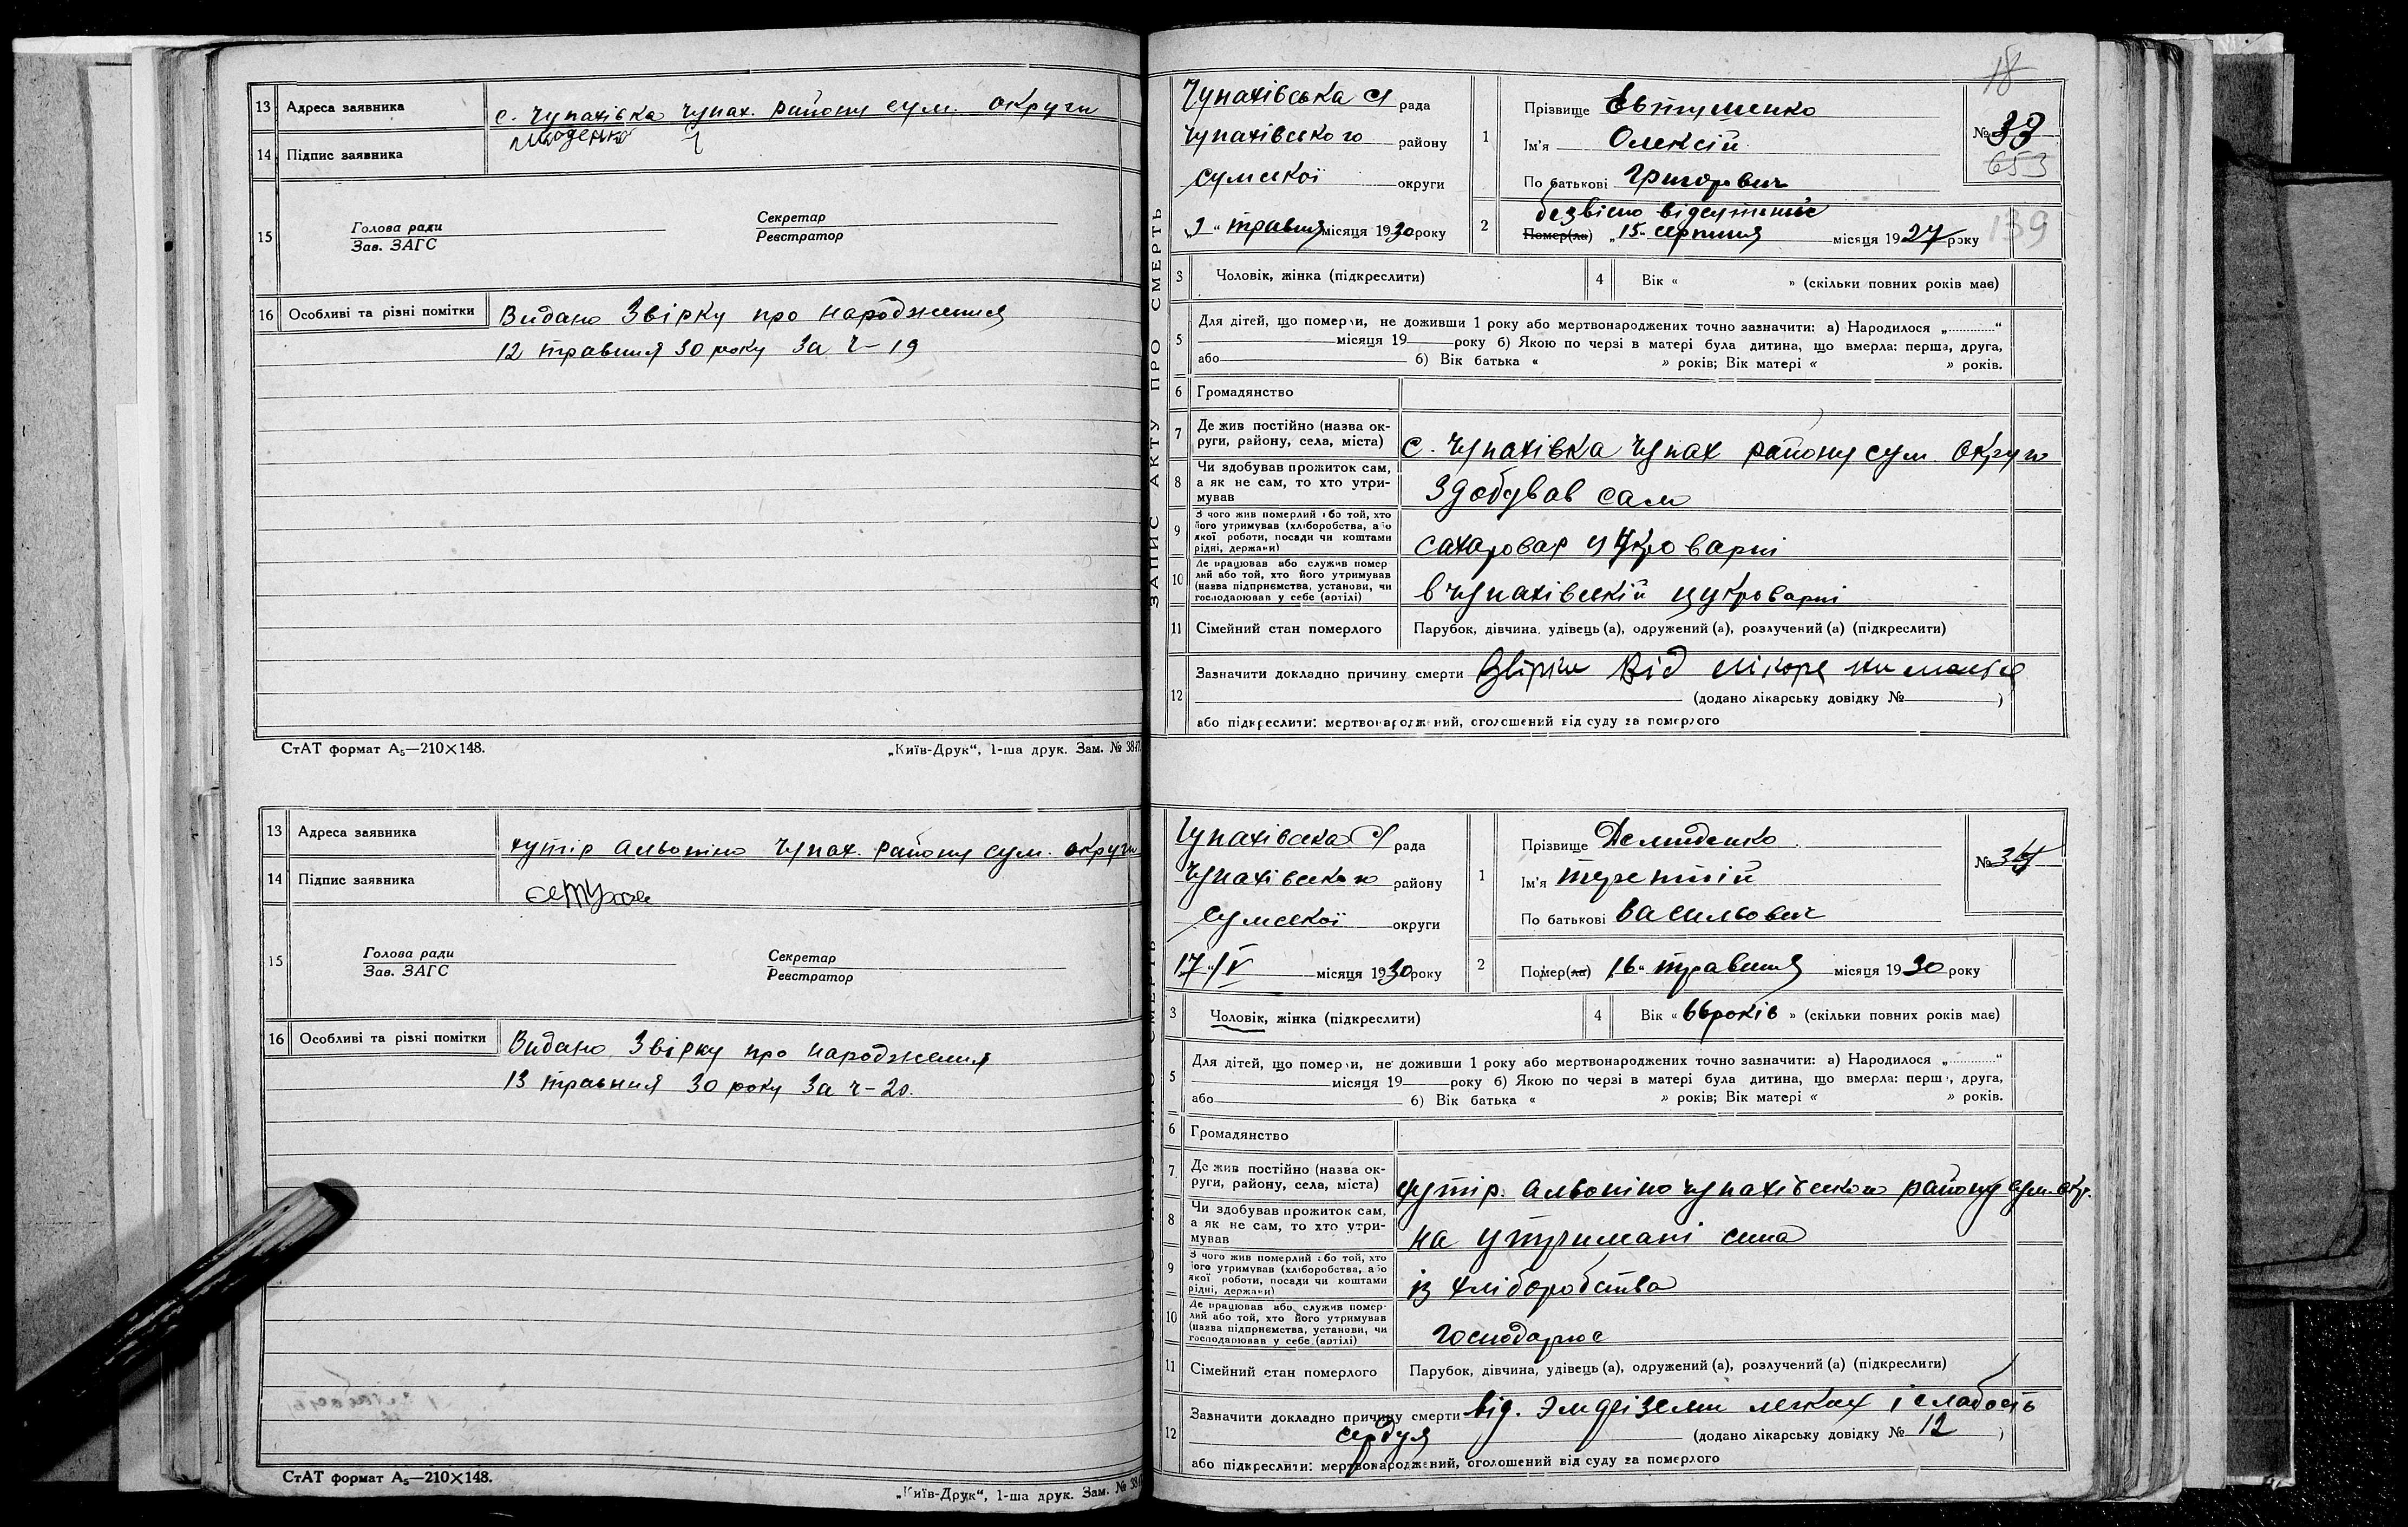 13 Адреса заявника с. Чупахівка Чупах. району сум. округи
14 Підпис заявника
15 Голова ради
Зав. ЗАГС
Секретар
Реєстратор
16 Особливі та різні помітки Видано Звірку про народження
12 травня 30 року За Ч-19
СтАТ формат А₅—210×148.
„Київ-Друк“, 1-ша друк. Зам. №
13 Адреса заявника хутір Альвоніно Чупах. району сум. округи
14 Підпис заявника
15 Голова ради
Зав. ЗАГС
Секретар
Реєстратор
16 Особливі та різні помітки Видано Звірку про народження
13 травня 30 року За Ч-20.
СтАТ формат А₅—210×148.
„Київ-Друк“, 1-ша друк. Зам. №
18
ЗАПИС АКТУ ПРО СМЕРТЬ
Чупахівська С/ рада
Чупахівського району
Сумської округи
травня місяця 1930 року
1 Прізвище Євтушенко
Ім'я Олексій
По батькові Григорович
№ 33
653
139
2 безвісно відсутній
Помер(ла) „15“ серпня місяця 1927 року
3 Чоловік, жінка (підкреслити)
4 Вік « » (скільки повних років має)
5 Для дітей, що померли, не доживши 1 року або мертвонароджених точно зазначити: а) Народилося „.............“
місяця 19 року б) Якою по черзі в матері була дитина, що вмерла: перша, друга,
або б) Вік батька « » років; Вік матері « » років.
6 Громадянство
7 Де жив постійно (назва округи, району, села, міста) с. Чупахівка Чупах району сум. округи
8 Чи здобував прожиток сам,
а як не сам, то хто утри-
мував здобував сам
9 З чого жив померлий або той, хто
його утримував (хліборобства, або
якої роботи, посади чи коштами
рідні, держави) сахаровар цукроварні
10 Де працював або служив помер
лий або той, хто його утримував
(назва підприємства, установи, чи
господарював у себе (артілі) в Чупахівській цукроварні
11 Сімейний стан померлого Парубок, дівчина, удівець (а), одружений (а), розлучений (а) (підкреслити)
12 Зазначити докладно причину смерти Звірки від лікоря
(додано лікарську довідку № )
або підкреслити: мертвонароджений, оголошений від суду за померлого
Чупахівська С/ рада
Чупахівського району
Сумської округи
17/IV місяця 1930 року
1 Прізвище Демиденко
Ім'я Терентій
По батькові Васильович
№ 34
2 Помер(ла) „16“ травня місяця 1930 року
3 Чоловік, жінка (підкреслити)
4 Вік « 66 років » (скільки повних років має)
5 Для дітей, що померли, не доживши 1 року або мертвонароджених точно зазначити: а) Народилося „.............“
місяця 19 року б) Якою по черзі в матері була дитина, що вмерла: перша, друга,
або б) Вік батька « » років; Вік матері « » років.
6 Громадянство
7 Де жив постійно (назва округи, району, села, міста) хутір. Альвоніно Чупахівського району сум. окр.
8 Чи здобував прожиток сам,
а як не сам, то хто утри-
мував на утримані сина
9 З чого жив померлий або той, хто
його утримував (хліборобства, або
якої роботи, посади чи коштами
рідні, держави) із хліборобства
10 Де працював або служив помер-
лий або той, хто його утримував
(назва підприємства, установи, чи
господарював у себе (артілі) господарює
11 Сімейний стан померлого Парубок, дівчина, удівець (а), одружений (а), розлучений (а) (підкреслити)
12 Зазначити докладно причину смерти від. Эмфіземи легких і слабость
сердця (додано лікарську довідку № 12 )
або підкреслити: мертвонароджений, оголошений від суду за померлого